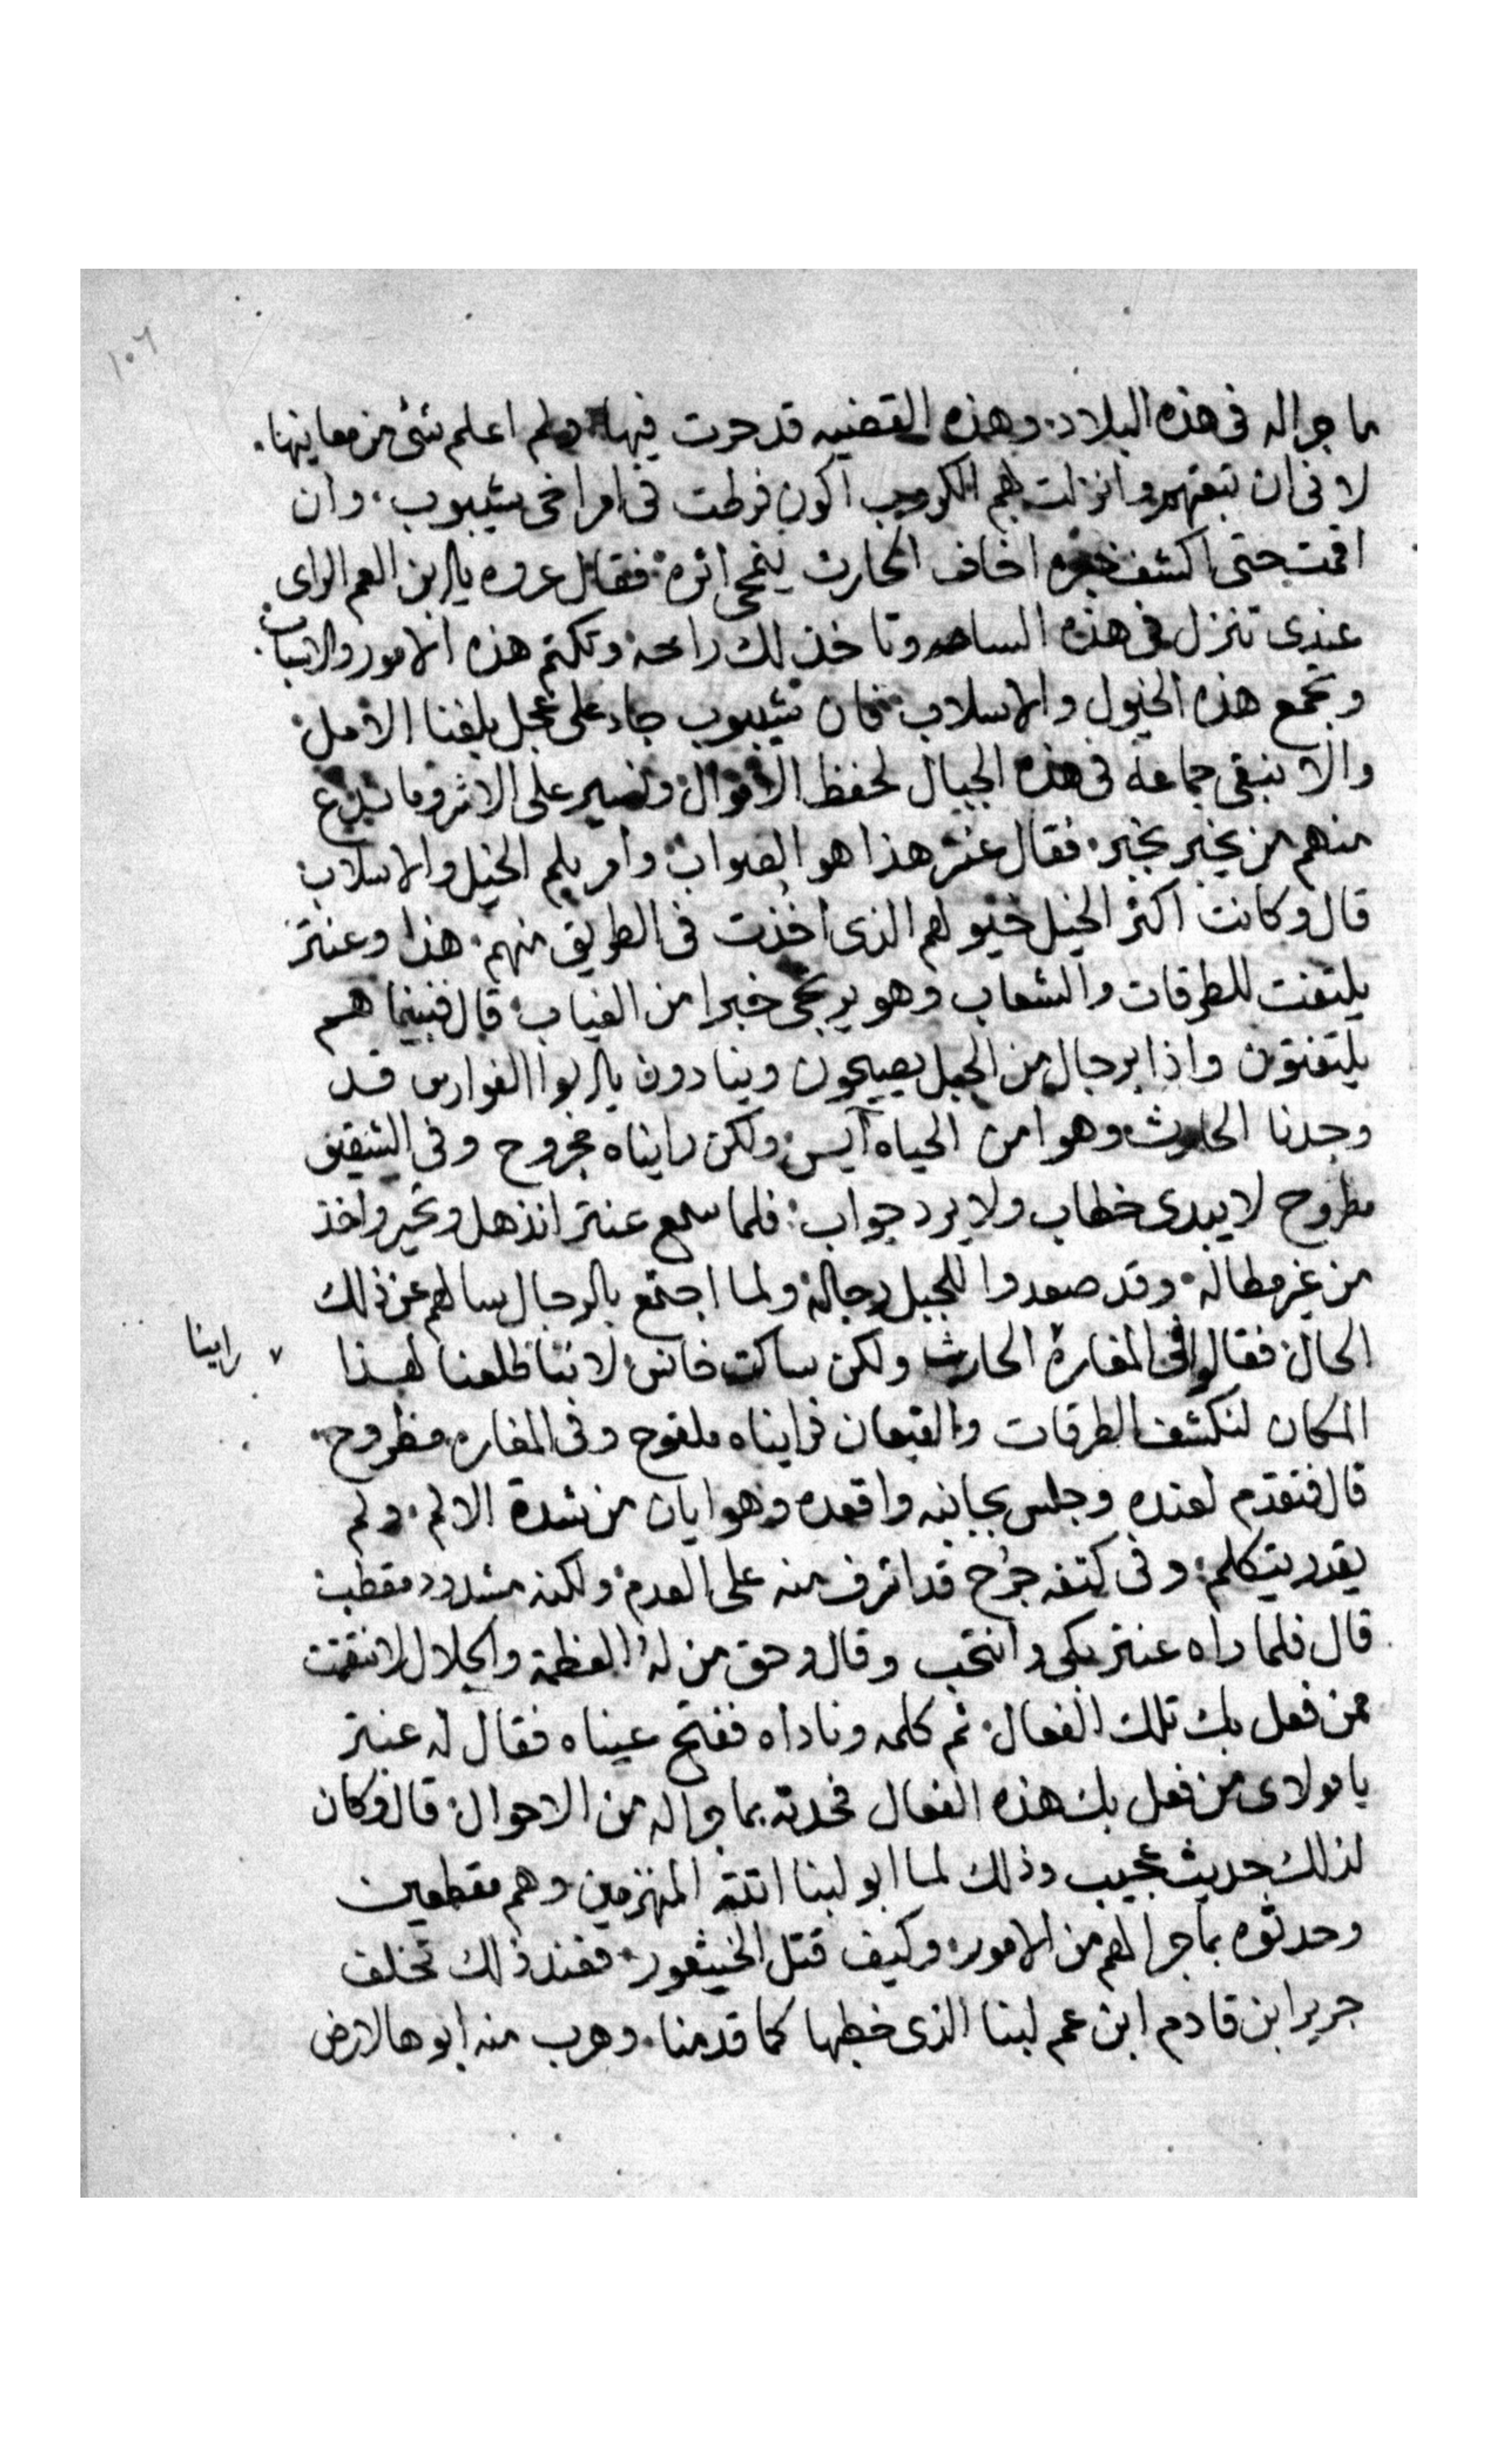 ١٠٦
ما جراله فى هذه البلاد. وهذه القضيه قد حرت فيها ولم اعلم شئ من معاينها.
لا نى ان تبعتهم وانزلت بهم الكروب اكون فرطت فى امر اخى شيبوب. وان
اقمت حتى اكشف خبره اخاف الحارث ينمحى اثره. فقال عروه يا ابن العم الراى
عندى تنزل فى هذه الساعه وتاخذ لك راحه وتكتم هذه الامور والاسباب.
وتجمع هذه الخيول والاسلاب. فان شيبوب جاد على عجل بلغنا الامل.
والا نبقى جماعة فى هذه الجبال لحفظ الاموال ونسير على الاثر وما ندع
منهم من يخبر بخبر. فقال عنتر هذا هو الصواب. وامر بلم الخيل والاسلاب
قال وكانت اكثر الخيل خيولهم الذى اخذت فى الطريق منهم. هذا وعنتر
يلتفت للطرقات والشعاب وهو يرتجى خبرا من الغياب. قال فبينما هم
يلتفتون واذا برجال من الجبل يصيحون وينادون يا ابوا الفوارس قد
وجدنا الحارث وهوا من الحياه آيس ولكن رايناه مجروح وفى الشقيق
مطروح لا يبدى خطاب ولا يرد جواب. فلما سمع عنتر انذهل وتحير واخذ
من غير مطاله. وقد صعدوا للجبل رجاله ولما اجتمع بالرجال سالهم عن ذلك
الحال. فقالوا فى المغارة الحارث ولكن ساكت خانس لاننا طلعنا لهذا
راينا
المكان لنكشف الطرقات والقيعان فرايناه ملقوح وفى المغاره مطروح.
قال فتقدم لعنده وجلس بجانبه واقعده وهوا يان من شدة الالم. ولم
يقدر يتكلم. وفى كتفه جرح قد اشرف منه على العدم. ولكنه مشدود مقطب
قال فلما راه عنتر بكى وانتحب وقال وحق من له العظمة والجلال لانتقمت
ممن فعل بك تلك الفعال. ثم كلمه وناداه ففتح عيناه فقال له عنتر
يا مولاى من فعل بك هذه الفعال فحدثه بما جراله من الاحوال. قال وكان
لذلك حديث عجيب وذلك لما ابو لبنا اتته المنهزمين وهم مقطعين
وحدثوه بما جرا لهم من الامور. وكيف قتل الخيثعور. فعند ذلك تخلف
جرير ابن قادم ابن عم لبنا الذى خطبها كما قدمنا. وهرب منه ابوها لارض